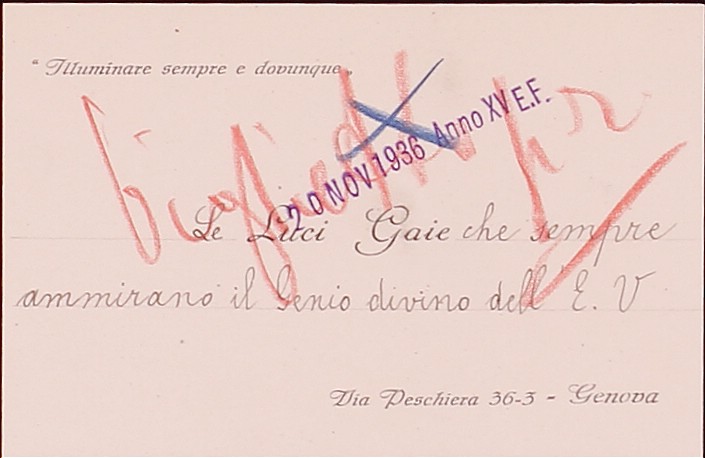 “Illuminare sempre e dovunque„
20 NOV 1936 Anno XV E.F.
Le Luci Gaie che sempre
ammirano il Genio divino dell' E. V
Via Peschiera 36-3 - Genova